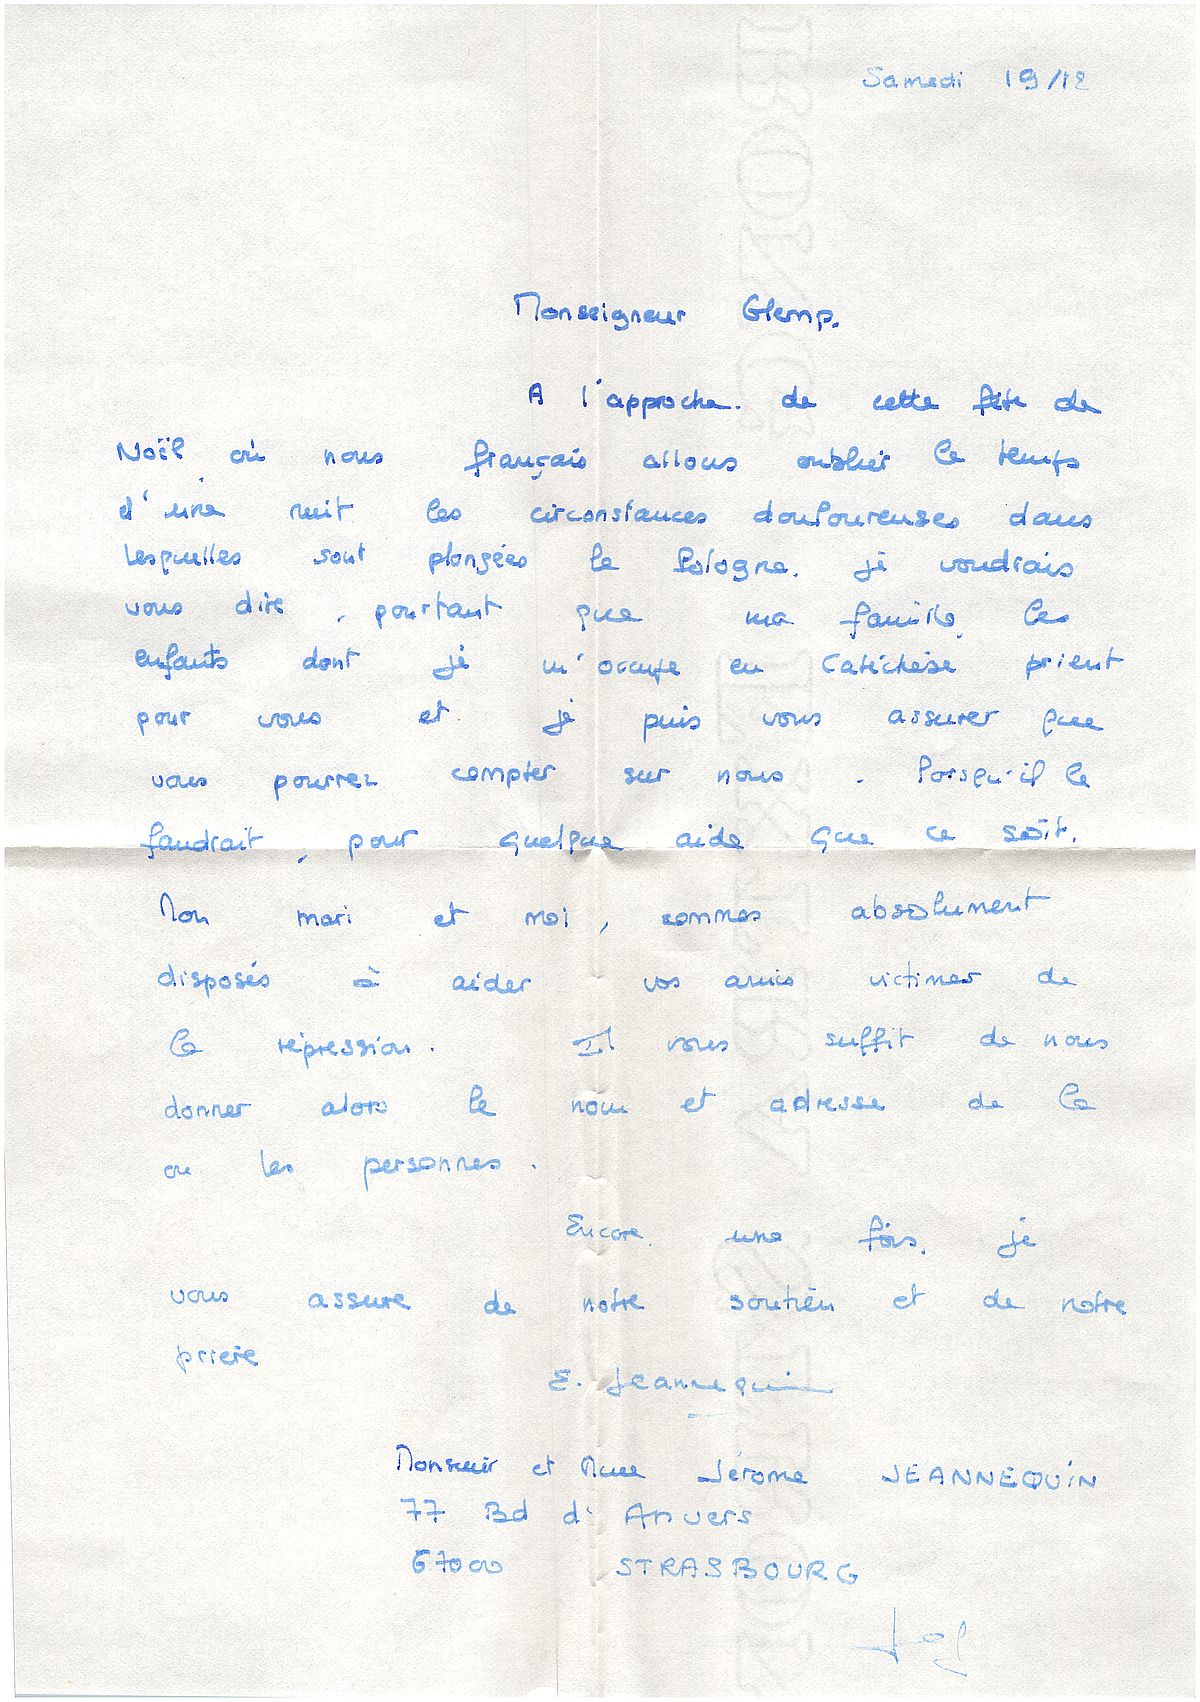 Samedi 19/12
Monseigneur Glemp,
A l'approche de cette fête de
Noël où nous français allons oublier le temps
d'une nuit les circonstances douloureuses dans
lesquelles sont plongées la Pologne, je voudrais
vous dire, pourtant que ma famille, les
enfants dont je m'occupe en Catéchèse prient
pour vous et je puis vous assurer que
vous pourrez compter sur nous. lorsqu'il le
faudrait, pour quelque aide que ce soit.
Mon mari et moi, sommes absolument
disposés à aider vos amis victimes de
la répression. Il vous suffit de nous
donner alors le nom et adresse de la
ou les personnes.
Encore une fois, je
vous assure de notre soutien et de notre
prière
E. Jeannequin
Monsieur et Mme Jérome JEANNEQUIN
77 Bd d'Anvers
67000 STRASBOURG